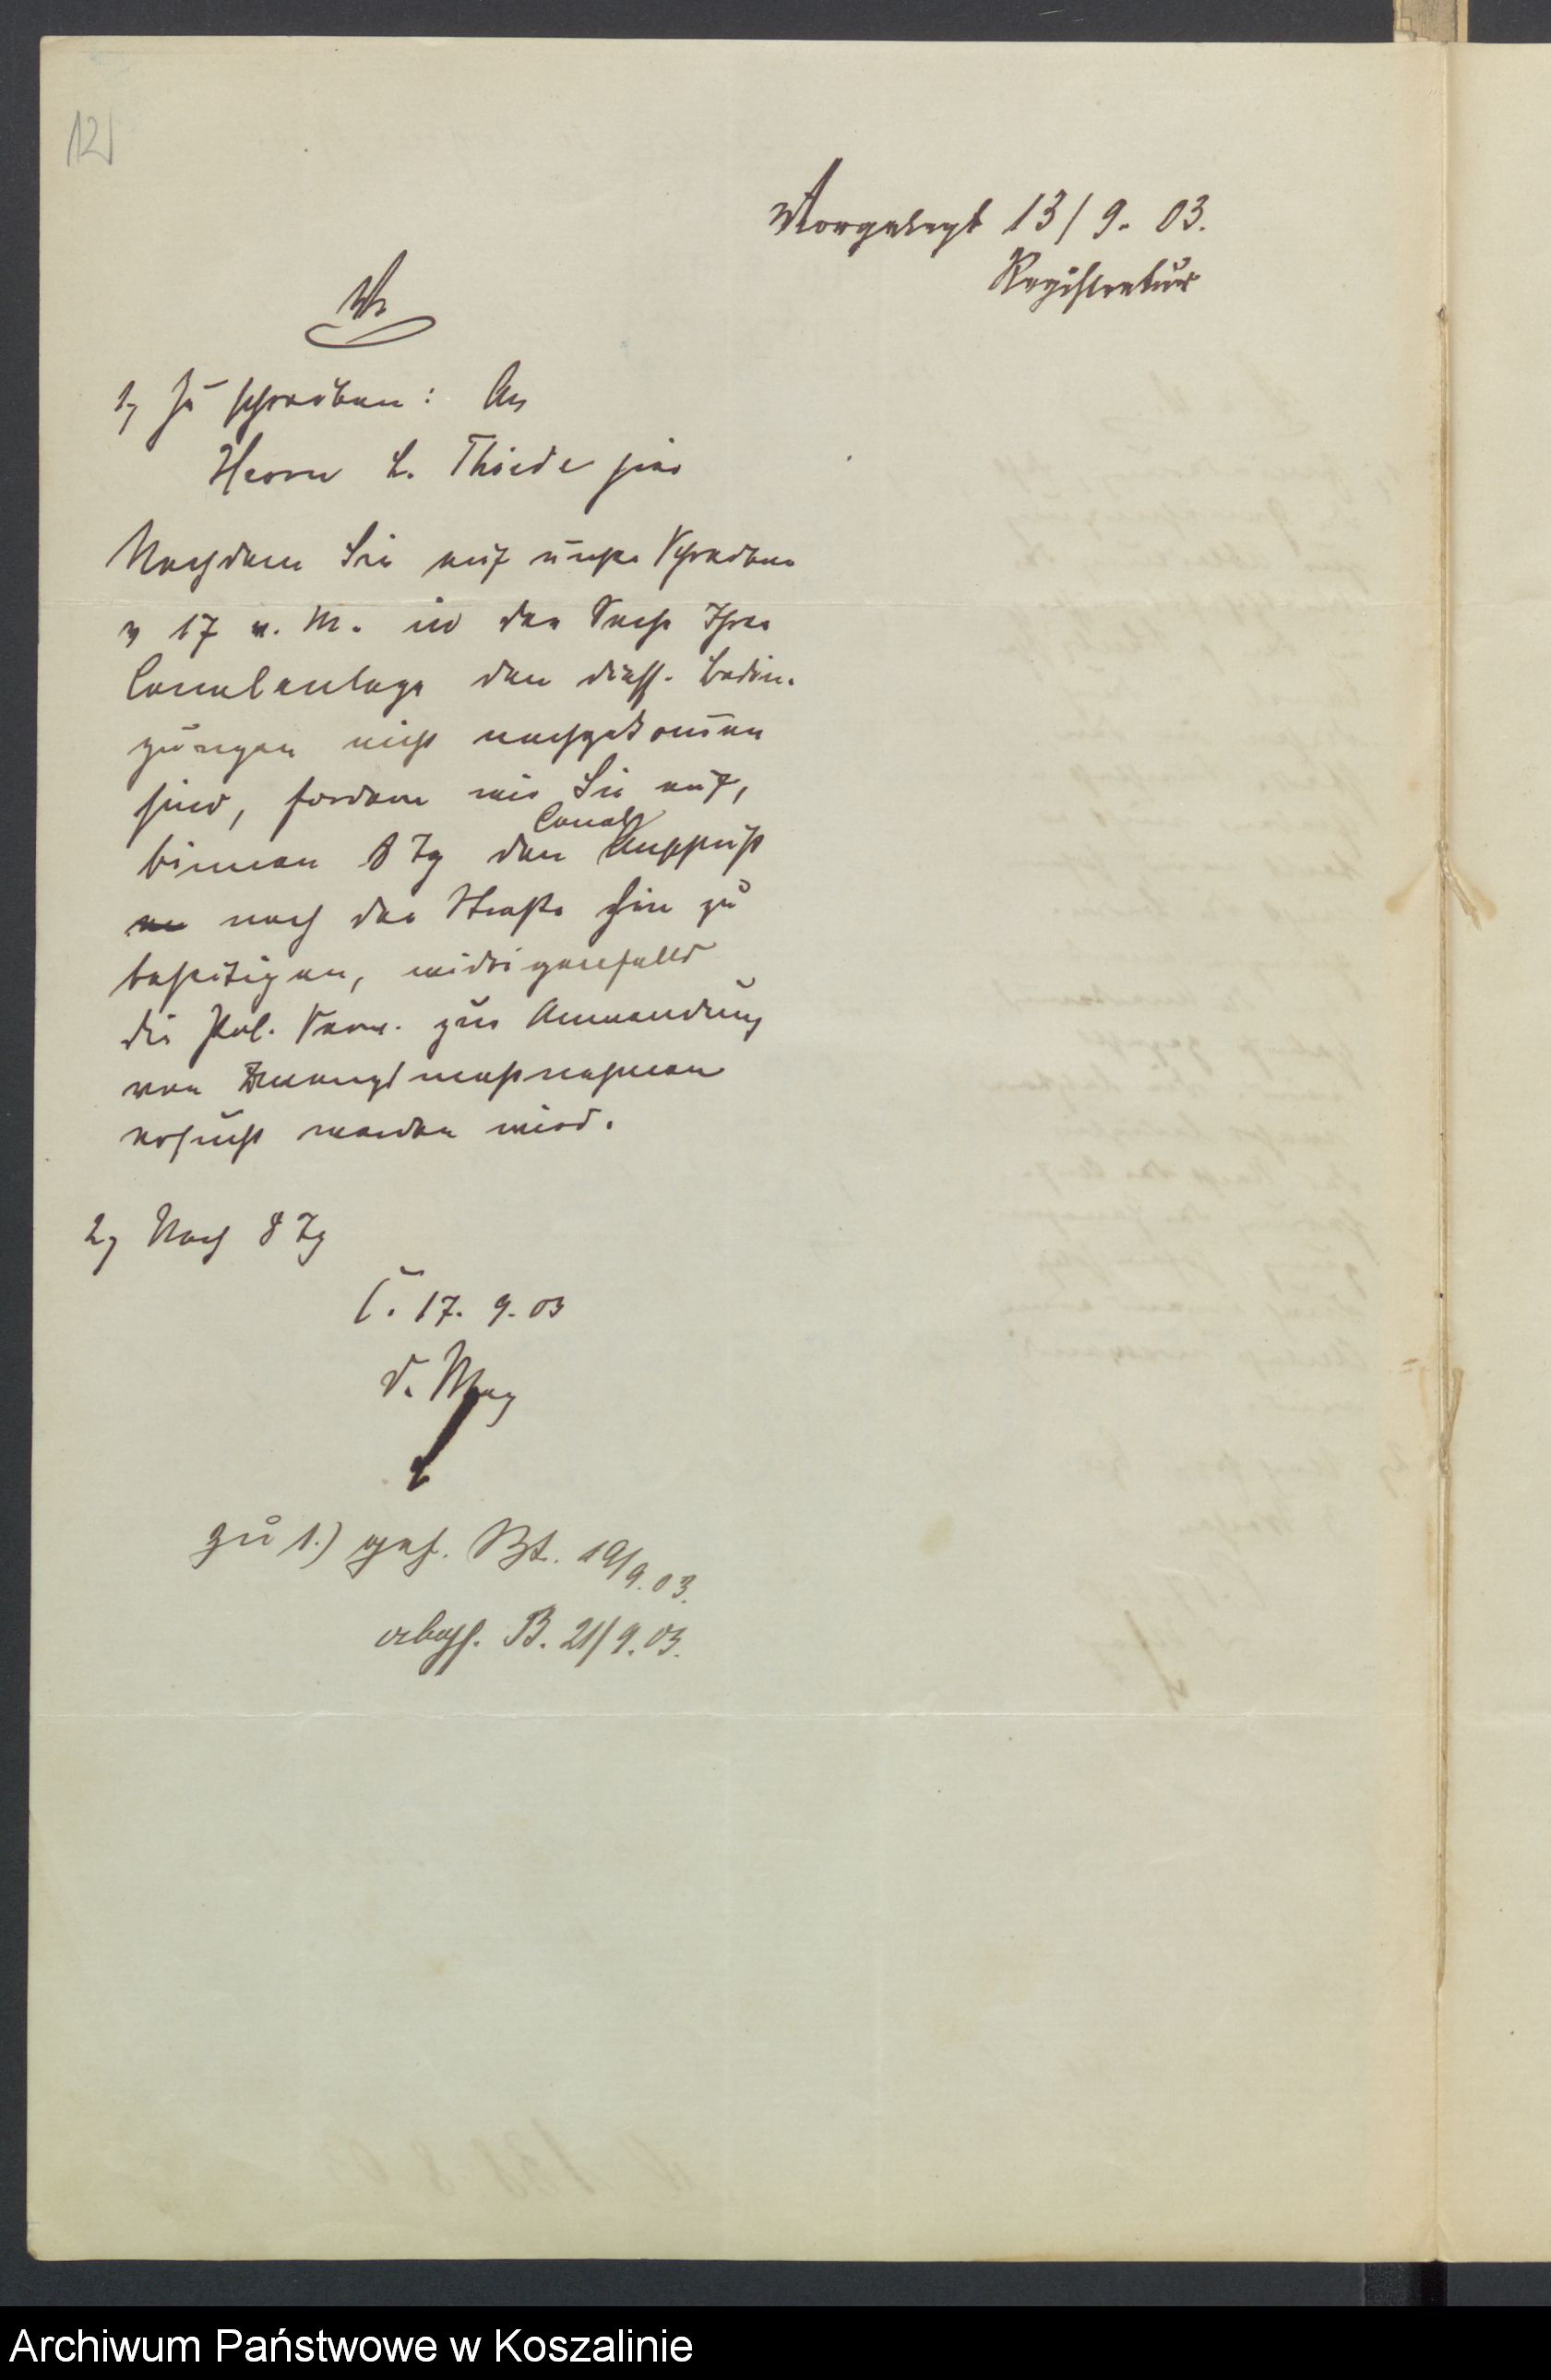 121
Vorgelegt 13/9. 03.
Registratur
V.
1, zu schreiben: An
Herrn L. Thiede hier
Nachdem Sie auf unser Schreiben
v 17 v. M. in der Sache Ihrer
Canalanlage den diess. Bedin-
gungen nicht nachgekommen
sind, fordern wir Sie auf,
binnen 8 Tg den Canal Anschluß
nach der Straße hin zu
beseitigen, widrigenfalls
die Pol. Verw. zur Anwendung
von Zwangsmaßnahmen
ersucht werden wird.
2, Nach 8 Tg
C. 17. 9. 03
D. Mag
zu 1.) gef. 19/9.03.
abges. B. 21/9.03.
Archiwum Państwowe w Koszalinie